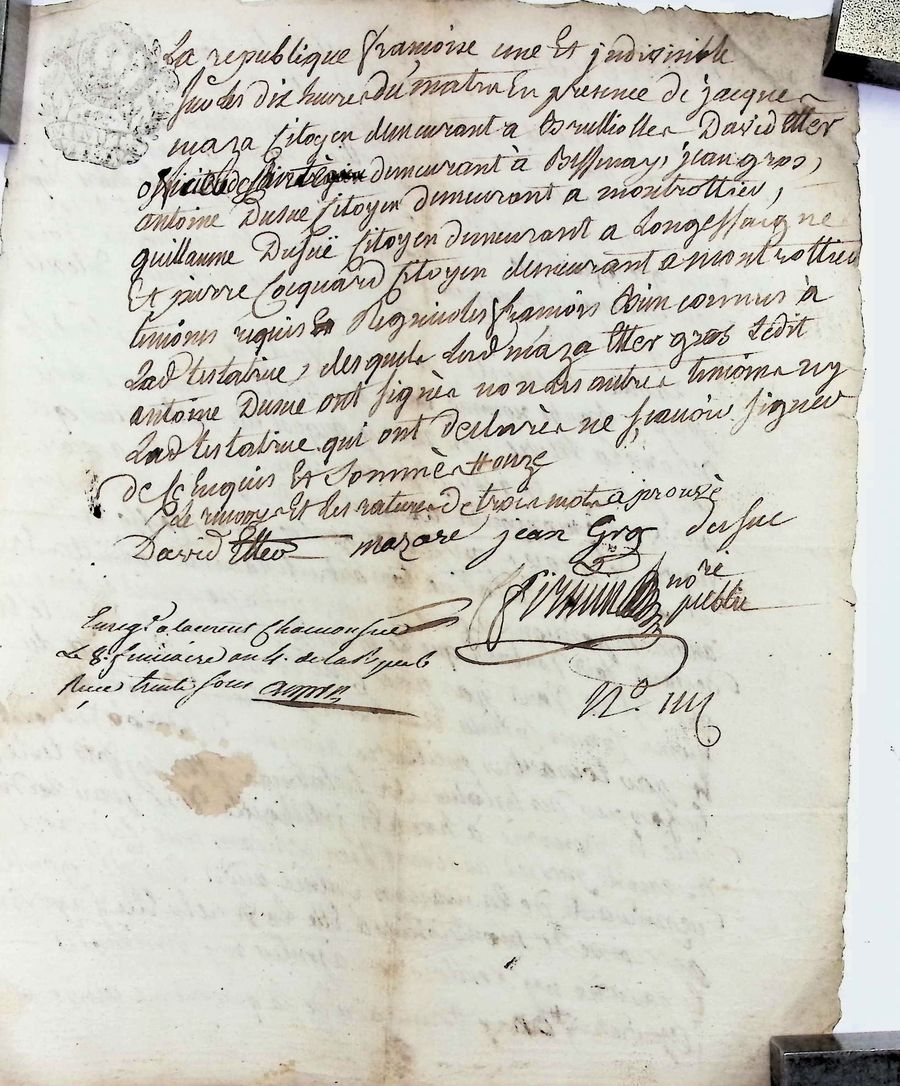 La republique françoise une Et jndivisible
sur les dix heures du matin En presence de jacques
maza Citoyen demeurant a Brulliolles David Etter
demeurant à Bessenay, jean gros,
antoine Dusuc Citoyen demeurant a montrottier,
guillaume Dusuc Citoyen demeurant a Longessaigne
Et pierre Cocquard Citoyen demeurant a montrottier
temoins requis Regnicoles françois Bien connus à
Lad testatrice, desquels Led maza Etter gros Ledit
antoine Dusuc ont signés non les autres temoins ny
Lad testatrice qui ont declarés ne sçavoir signer
de ce Enquis Et Sommés
Le renvoy Et les ratures de trois mots aprouvé
David Etter mazare jean Gros dusuc
nore
public
Enregé a laurent Chamousset
Le 8. frimaire an 4. de la Repub
Recu trente sous